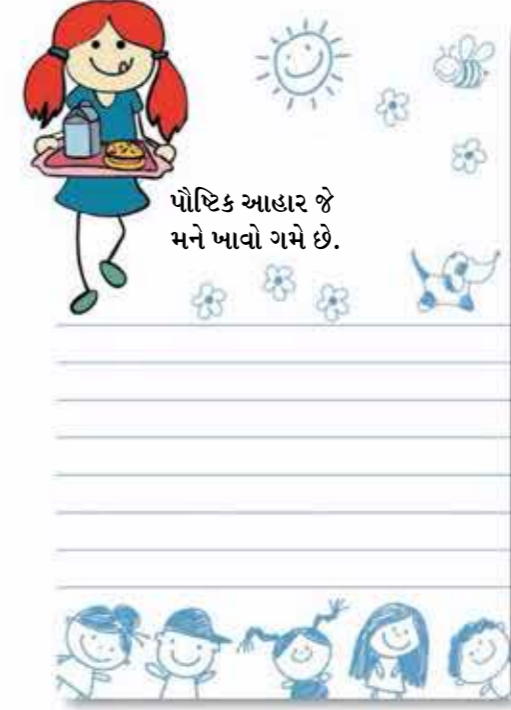 પૌષ્ટિક આહાર જે
મને ખાવો ગમે છે.